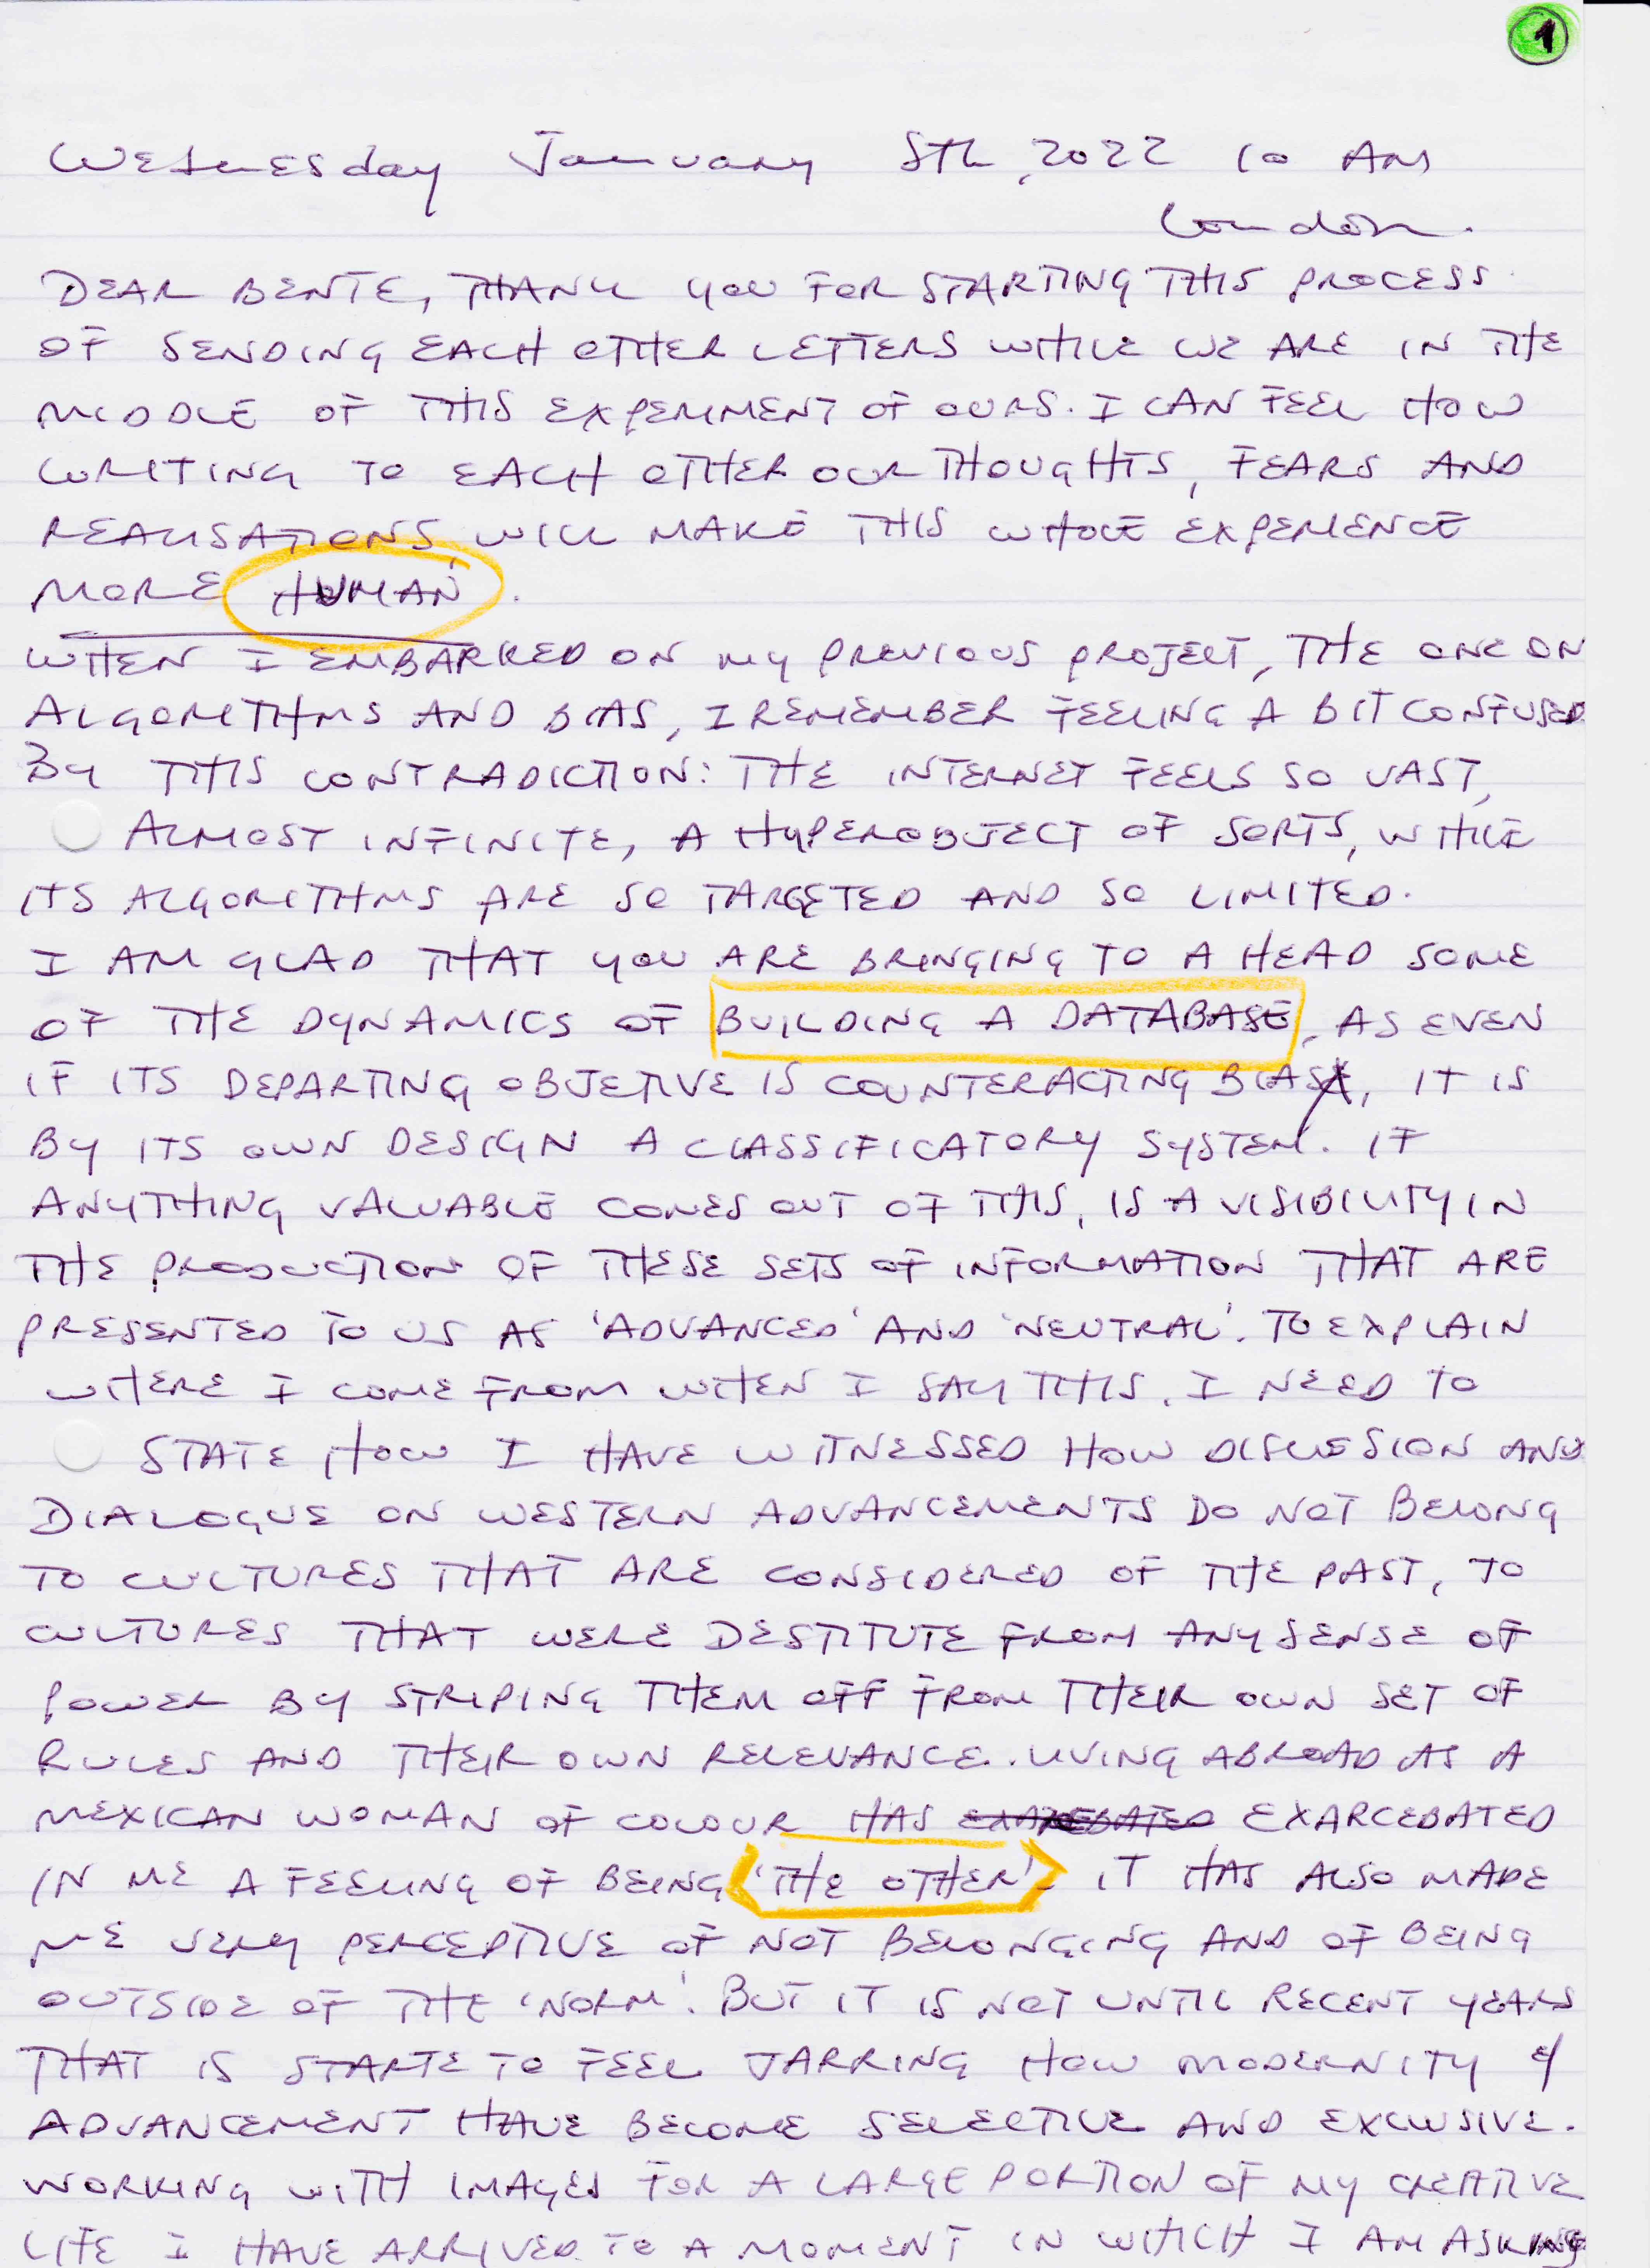 1
Wednesday January 5th, 2022 10 AM
London.
DEAR BENTE, THANK YOU FOR STARTING THIS PROCESS
OF SENDING EACH OTHER LETTERS WHILE WE ARE IN THE
MIDDLE OF THIS EXPERIMENT OF OURS. I CAN FEEL HOW
WRITING TO EACH OTHER OUR THOUGHTS, FEARS AND
REALISATIONS, WILL MAKE THIS WHOLE EXPERIENCE
MORE HUMAN.
WHEN I EMBARKED ON MY PREVIOUS PROJECT, THE ONE ON
ALGORITHMS AND BIAS, I REMEMBER FEELING A BIT CONFUSED
BY THIS CONTRADICTION: THE INTERNET FEELS SO VAST,
ALMOST INFINITE, A HYPEROBJECT OF SORTS, WHILE
ITS ALGORITHMS ARE SO TARGETED AND SO LIMITED.
I AM GLAD THAT YOU ARE BRINGING TO A HEAD SOME
OF THE DYNAMICS OF BUILDING A DATABASE, AS EVEN
IF ITS DEPARTING OBJETIVE IS COUNTERACTING BIAS, IT IS
BY ITS OWN DESIGN A CLASSIFICATORY SYSTEM. IF
ANYTHING VALUABLE COMES OUT OF THIS, IS A VISIBILITY IN
THE PRODUCTION OF THESE SETS OF INFORMATION THAT ARE
PRESENTED TO US AS 'ADVANCED' AND 'NEUTRAL'. TO EXPLAIN
WHERE I COME FROM WHEN I SAY THIS, I NEED TO
STATE HOW I HAVE WITNESSED HOW DISCUSSION AND
DIALOGUE ON WESTERN ADVANCEMENTS DO NOT BELONG
TO CULTURES THAT ARE CONSIDERED OF THE PAST, TO
CULTURES THAT WERE DESTITUTE FROM ANY SENSE OF
POWER BY STRIPING THEM OFF FROM THEIR OWN SET OF
RULES AND THEIR OWN RELEVANCE. LIVING ABROAD AS A
MEXICAN WOMAN OF COLOUR HAS EXARCEBATED
IN ME A FEELING OF BEING 'THE OTHER'. IT HAS ALSO MADE
ME VERY PERCEPTIVE OF NOT BELONGING AND OF BEING
OUTSIDE OF THE 'NORM'. BUT IT IS NOT UNTIL RECENT YEARS
THAT IS STARTE TO FEEL JARRING HOW MODERNITY &
ADVANCEMENT HAVE BECOME SELECTIVE AND EXCLUSIVE.
WORKING WITH IMAGES FOR A LARGE PORTION OF MY CREATIVE
LIFE I HAVE ARRIVED TO A MOMENT IN WHICH I AM ASKING